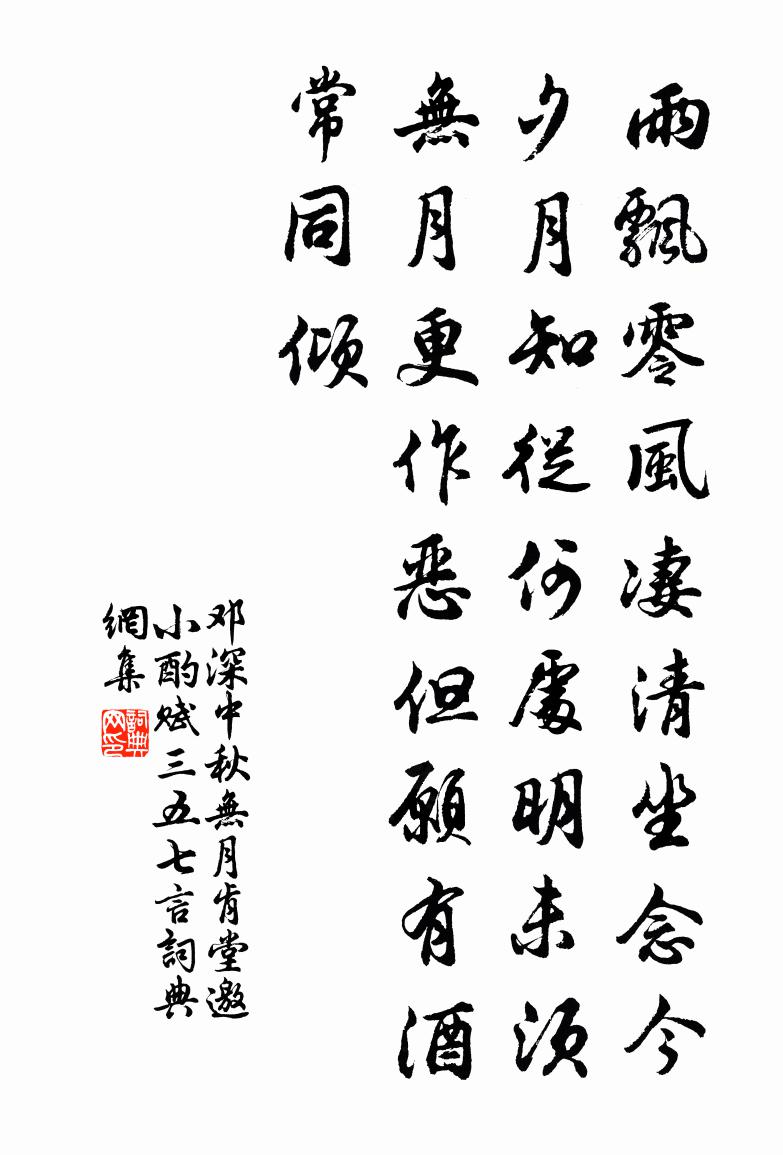 雨飄零風淒清坐念今
夕月知從何處明未須
無月更作惡但願有酒
常同傾
邓深中秋無月肯堂邀
小酌賦三五七言詞典
網集
詞典
网印